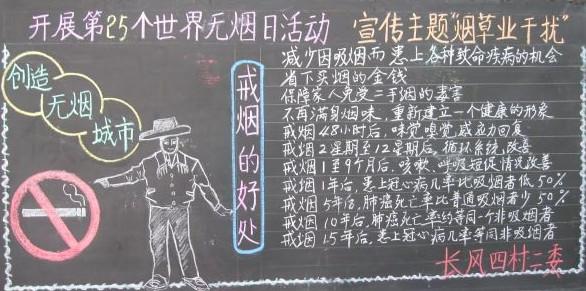 开展第25个世界无烟日活动 宣传主题"烟草业干扰"
创造
无烟
城市
戒烟的好处
减少因吸烟而患上各种致命疾病的机会
省下买烟的金钱
保障家人免受二手烟的毒害
不再满身烟味，重新建立一个健康的形象
戒烟48小时后，味觉嗅觉感应力回复
戒烟2星期至12星期后，循环系统改善
戒烟1至9个月后，咳嗽、呼吸短促情况改善
戒烟1年后，患上冠心病几率比吸烟者低50%
戒烟5年后，肺癌死亡率比普通吸烟者少50%
戒烟10年后，肺癌死亡率约等同一个非吸烟者
戒烟15年后，患上冠心病几率等同非吸烟者
长风四村二委